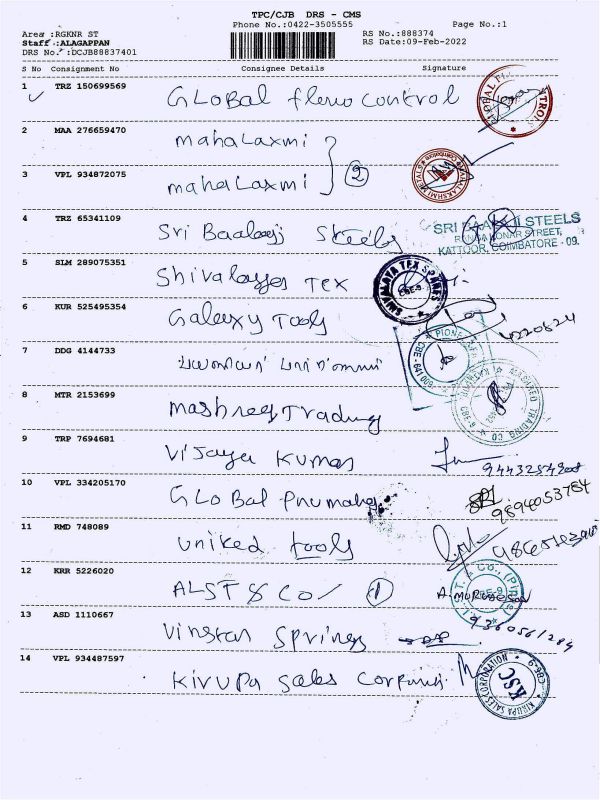 TPC/CJB DRS - CMS
Phone No.:0422-3505555
Page No.:1
Area :RGKNR ST
Staff :ALAGAPPAN
DRS No. :DCJB88837401
RS No.:888374
RS Date:09-Feb-2022
S No Consignment No Consignee Details Signature
1 TRZ 150699569 GLOBAL flowcontrol
2 MAA 276659470 mahaLaxmi
3 VPL 934872075 mahaLaxmi
2
4 TRZ 65341109 Sri Baalaaji Steels
SRI BAALAAJI STEELS
STREET,
KATTOOR, COIMBATORE - 09.
5 SLM 289075351 Shivalayas Tex
SHIVALAYA TEX SPARES
6 KUR 525495354 Galaxy Tools
4220624
7 DDG 4144733
8 MTR 2153699 mashreq Trading
TRADING CO
9 TRP 7694681 Vijaya Kumar
10 VPL 334205170 GLOBAL
9894053784
11 RMD 748089 uniked tools
12 KRR 5226020 ALST & Co/ 1
A. MURUGESAN
13 ASD 1110667 Vinstar Springs
9360561284
14 VPL 934487597 Kirupa Sales
KIRUPA SALES CORPORATION
KSC